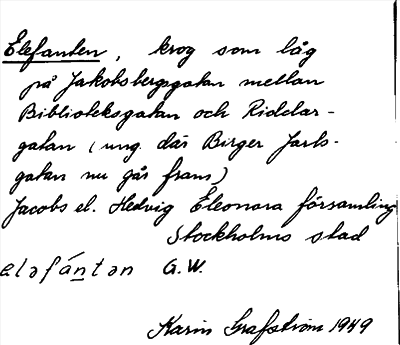 Elefanten, krog som låg
på Jakobsbergsgatan mellan
Biblioteksgatan och Riddar-
gatan (ung. där Birger Jarls-
gatan nu går fram)
Jacobs el. Hedvig Eleonora församling
Stockholms stad
eləfántən G.W.
Karin Grafström 1949